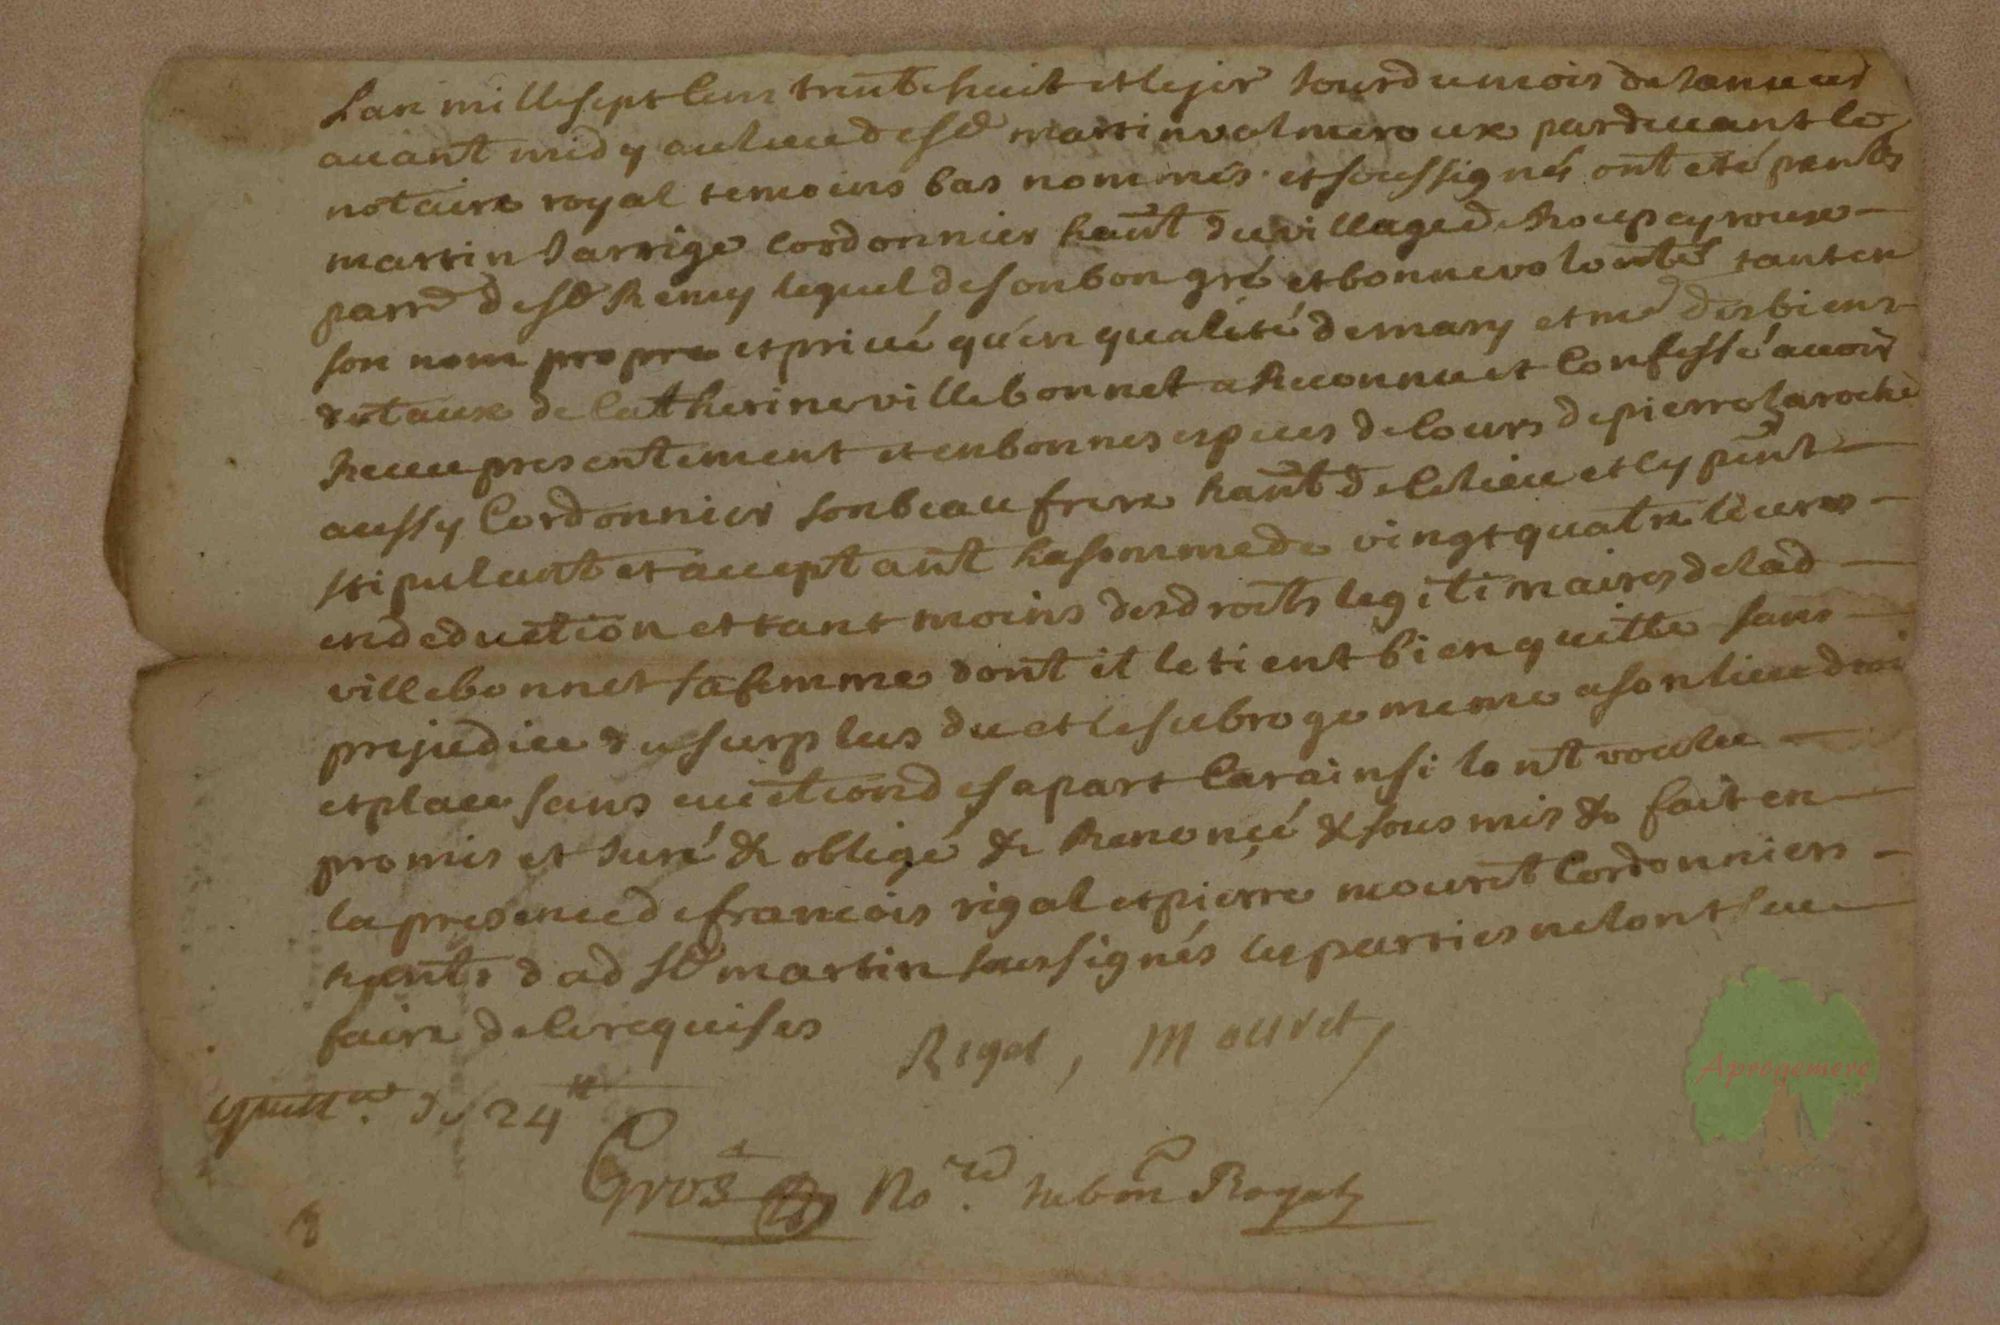 Lan mille sept cens trente huit et le jer Jour du mois de Januier
auant midy au lieu de st martin valmeroux pardeuant le
notaire royal temoins bas nommés et soussignés ont eté pnts
martin Jarrige Cordonnier hant du village de Roupeyroux
parr de st Remy lequel de son bon gré et bonne volonté tant en
son nom propre et priué qu'en qualité de mary et me des biens
dotaux de Catherine villebonnet a Reconnu et Confessé auoir
Receu presentement et en bonnes especes de cours de pierre Laroche
aussy Cordonnier son beau frere hant de ce lieu et cy pnt
stipulant et acceptant La somme de vingt quatre liures
en deduction et tant moins des droits legitimaires de lad
villebonnet sa femme dont il le tient bien quitte sans
prejudice du surplus du et le subroge meme a son lieu droi
et place sans euiction de sa part Car ainsi lont voulu
promis et Juré & obligé & Renoncé & sousmis & fait en
la presence de francois rigal et pierre mouret Cordonniers
hants dad st martin soussignés les parties ne lont sceu
faire de ce requises
Rigal, Mouret,
quittce. de 24 lt
Gros No.re Royal